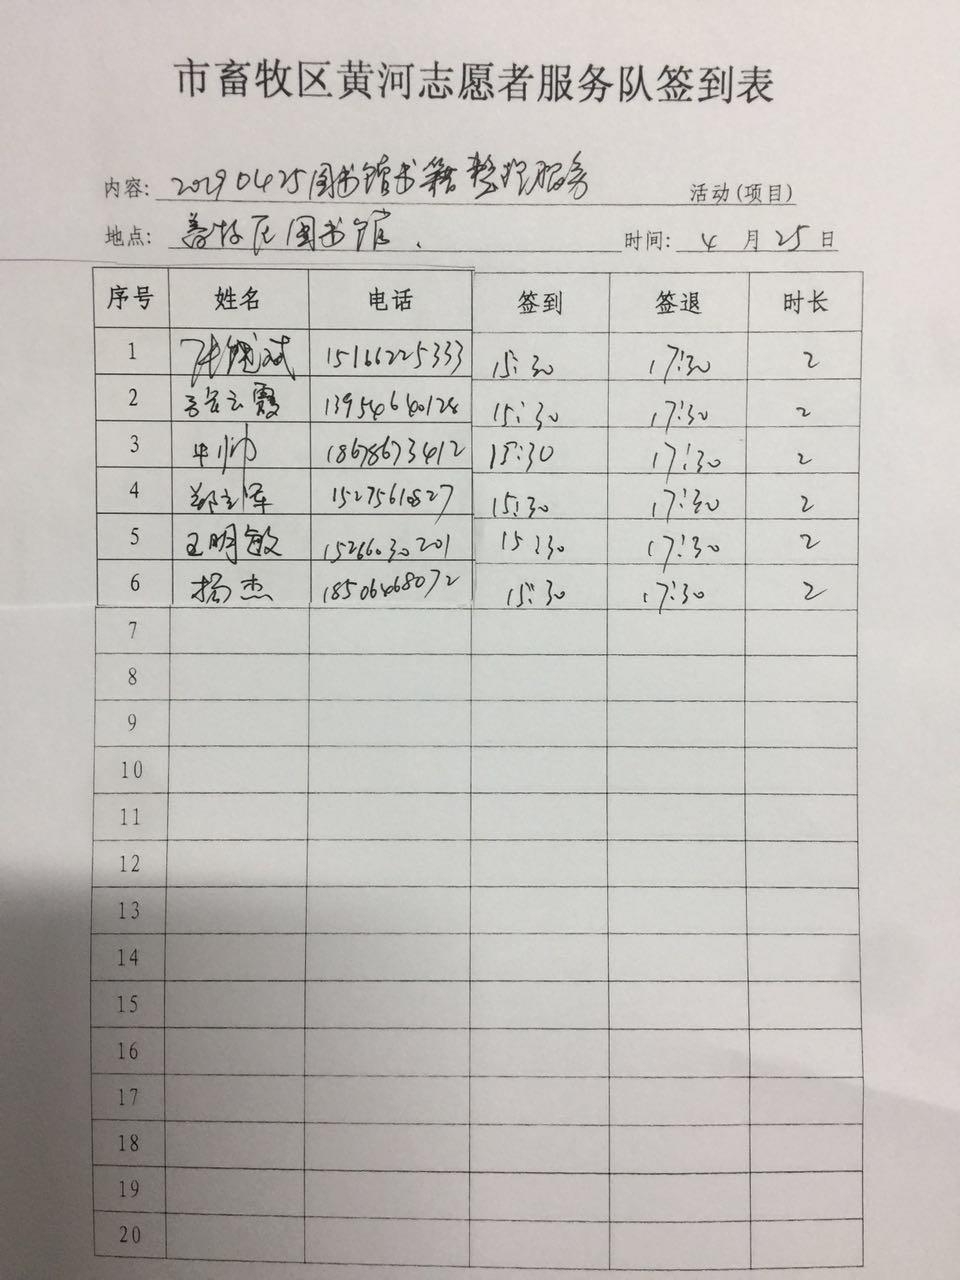 市畜牧区黄河志愿者服务队签到表
内容: 20190425图书馆书籍整理服务 活动(项目)
地点: 畜牧区图书馆. 时间: 4 月 25 日
序号 姓名 电话 签到 签退 时长
1 15166225333 15:30 17:30 2
2 云霞 13954640128 15:30 17:30 2
3 毕帅 18678673412 15:30 17:30 2
4 郑立军 15275610827 15:30 17:30 2
5 王明敏 15266030201 15:30 17:30 2
6 杨杰 18506468072 15:30 17:30 2
7
8
9
10
11
12
13
14
15
16
17
18
19
20